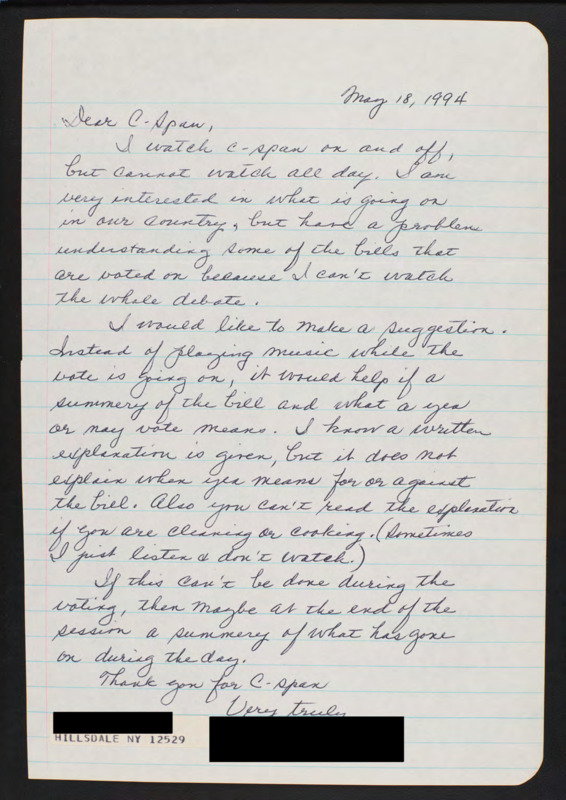 May 18, 1994
Dear C-Span,
I watch C-span on and off,
but cannot watch all day. I am
very interested in what is going on
in our country, but have a problem
understanding some of the bills that
are voted on because I can't watch
the whole debate.
I would like to make a suggestion.
Instead of playing music while the
vote is going on, it would help if a
summery of the bill and what a yea
or nay vote means. I know a written
explanation is given, but it does not
explain when yea means for or against
the bill. Also you can't read the explanation
if you are cleaning or cooking. (Sometimes
I just listen & don't watch.)
If this can't be done during the
voting, then maybe at the end of the
session a summery of what has gone
on during the day.
Thank you for C-span
Very truly
HILLSDALE NY 12529